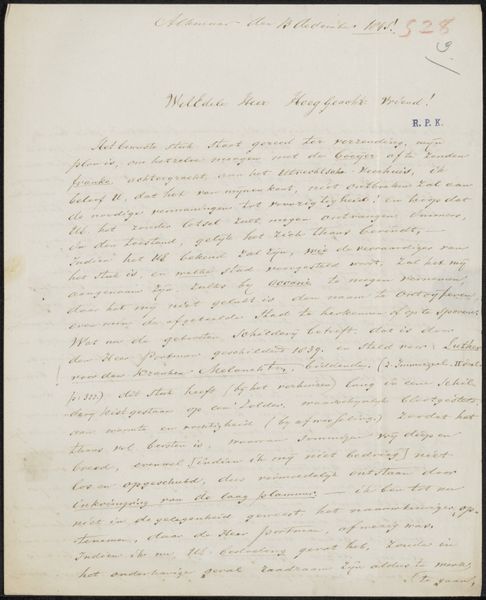 Alkmaar den 13 December 1845!
528
9
WelEdele Heer Hooggeacht Vriend!
R. P. K.
Het bewuste stuk staat gereed ter verzending, mijn
plan is, om hetzelve morgen met de te zenden
franko achtergracht, aan het Utrechtsche Veerhuis, ik
beloof U, dat het van mijnen kant, niet ontbreken zal aan
de noodige vermaningen tot voorzigtigheid! en hoop dat
UE het zonder letsel zult mogen ontvangen
in den toestand, gelijk het zich thans bevindt,
Indien het UE bekend zal zijn, wie de vervaardiger van
het stuk is, en welke stad voorgesteld wordt, zal het mij
aangenaam zijn, zulks bij te mogen vernemen,
daar het mij niet gelukt is, den naam te ontcijferen,
evenmin de afgebeelde stad te herkennen of op te sporen.
Wat nu de gebersten Schilderij betreft, dat is door
den Heer Portman geschilderd 1839. en steld voor: Luther
voor den Kranken Melanchton, biddende. (z. Immerzeel
p: 322.) dit stuk heeft (bij het verhuizen) lang in eene
op een Zolder, waarschijnlijk blootgesteld
aan warmte en vochtigheid (bij afwisseling) zoodat het
thans vol bersten is, waarvan sommige vrij diep en
breed, evenwel [indien ik mij niet bedrieg] niet
los en opgeschubd, dus vermoedelijk ontstaan door
Inkrimping van de laag plamuur — ik ben tot nu
niet in de gelegenheid geweest het naauwkeuriger op-
tenemen, daar de Heer Portman, afwezig was.
Indien ik nu UE bedoeling gevat heb, zoude in
het onderhavige geval raadzaam zijn aldus te werk
(te gaan,